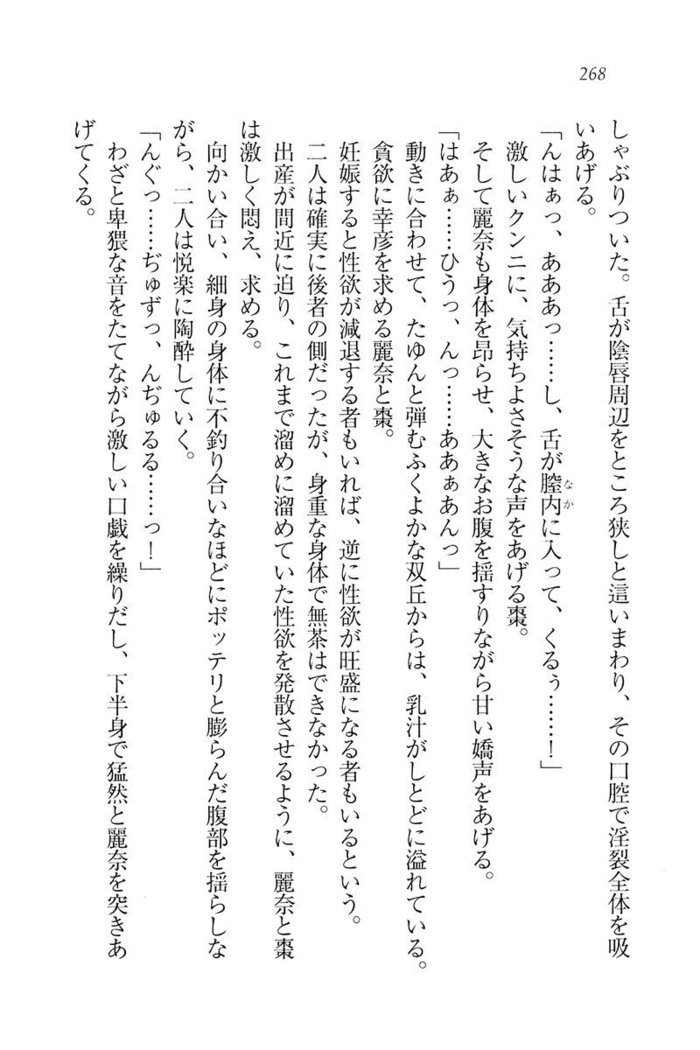 268
しゃぶりついた。舌が陰唇周辺をところ狭しと這いまわり、その口腔で淫裂全体を吸
いあげる。
「んはぁっ、あああっ……し、舌が膣内に入って、くるぅ……！」
なか
激しいクンニに、気持ちよさそうな声をあげる棗。
そして麗奈も身体を昂らせ、大きなお腹を揺すりながら甘い嬌声をあげる。
「はあぁ……ひうっ、んっ……ああぁあんっ」
動きに合わせて、たゆんと弾むふくよかな双丘からは、乳汁がしとどに溢れている。
貪欲に幸彦を求める麗奈と棗。
妊娠すると性欲が減退する者もいれば、逆に性欲が旺盛になる者もいるという。
二人は確実に後者の側だったが、身重な身体で無茶はできなかった。
出産が間近に迫り、これまで溜めに溜めていた性欲を発散させるように、麗奈と棗
は激しく悶え、求める。
向かい合い、細身の身体に不釣り合いなほどにポッテリと膨らんだ腹部を揺らしな
がら、二人は悦楽に陶酔していく。
「んぐっ……ぢゅずっ、んぢゅるる……っ！」
わざと卑猥な音をたてながら激しい口戯を繰りだし、下半身で猛然と麗奈を突きあ
げてくる。